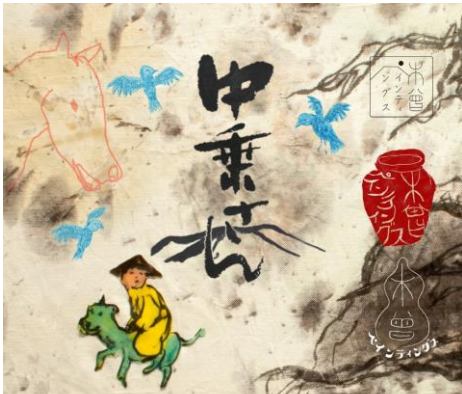 中乗さん
木曾
ペインティ
ングス
木曽ペインティングス
木曾
ペインティングス